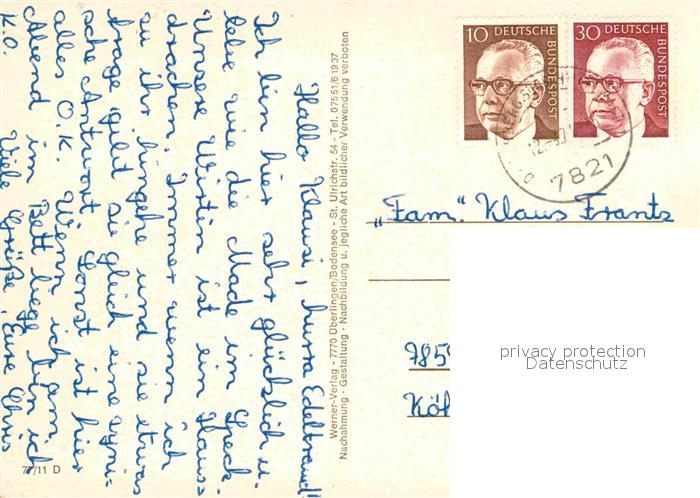 Hallo Klausi, hurra Edeltraud!
Ich bin hier sehr glücklich u.
lebe wie die Made im Speck.
Unsere Wirtin ist ein Haus-
drachen. Immer wenn ich
zu ihr hingehe und sie etwas
frage, gibt sie gleich eine zyni-
sche Antwort. Sonst ist hier
alles O.K. Wenn ich am
Abend im Bett liege bin ich
K.O. Viele Grüße, Eure Chris
77/11 D
Werner-Verlag - 7770 Überlingen/Bodensee - St. Ulrichstr. 54 - Tel. 07551/61937
Nachahmung - Gestaltung - Nachbildung u. jegliche Art bildlicher Verwendung verboten
10 DEUTSCHE BUNDESPOST
30 DEUTSCHE BUNDESPOST
7821
"Fam." Klaus Frantz
785
Köh
privacy protection
Datenschutz